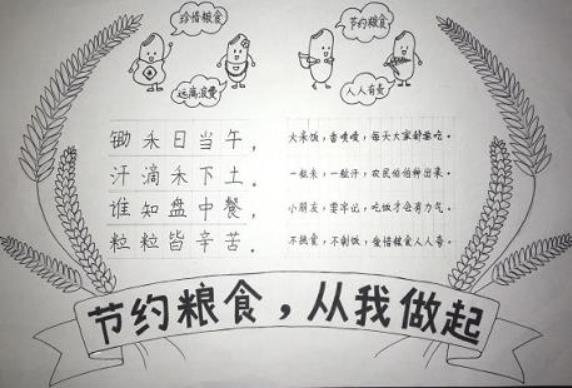 珍惜粮食
远离浪费
节约粮食
人人有责
锄禾日当午，
汗滴禾下土。
谁知盘中餐，
粒粒皆辛苦。
大米饭，香喷喷，每天大家都要吃。
一粒米，一粒汗，农民伯伯种出来。
小朋友，要牢记，吃饭才会有力气。
不挑食，不剩饭，爱惜粮食人人夸。
节约粮食，从我做起